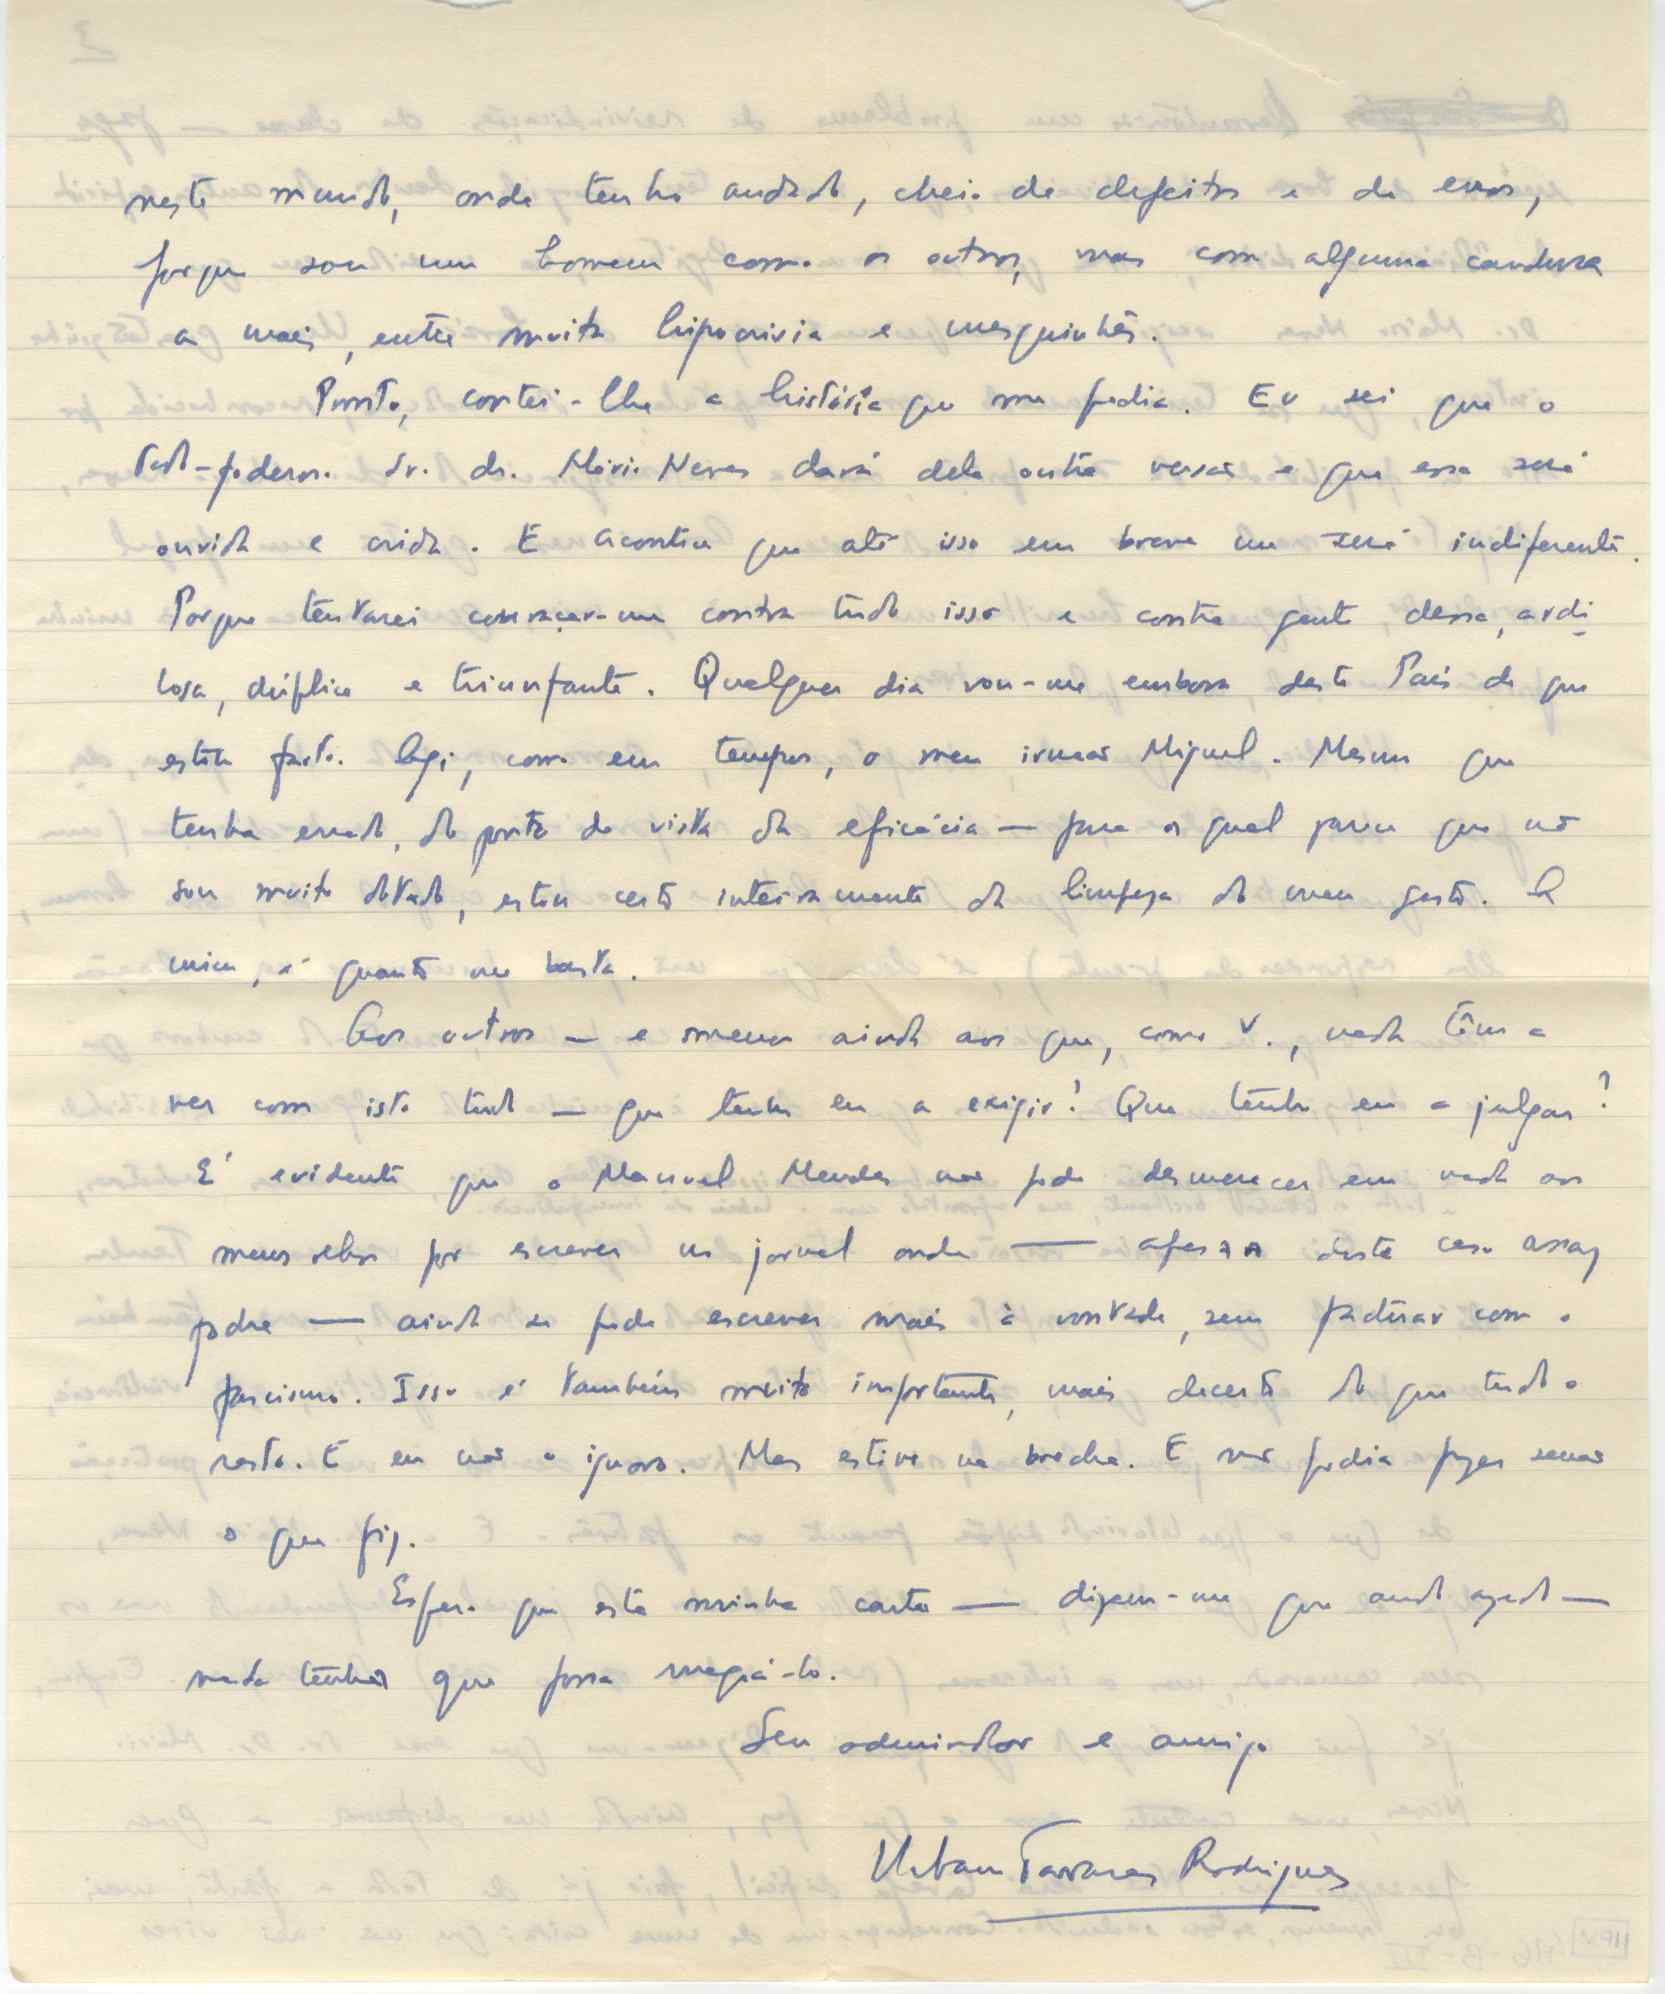 neste mundo, onde tenho andado, cheio de defeitos e de erros,
porque sou um homem como os outros, mas com alguma candura
a mais, entre muita hipocrisia e mesquinhês.
Pronto, contei-lhe a história que me pedia. Eu sei que o
todo-poderoso Sr. dr. Mário Neves dará dela outra versão e que essa será
ouvida e crida. E acontece que até isso em breve me será indiferente.
Porque tentarei couraçar-me contra tudo isso e contra gente dessa, ardi
losa, dúplice e triunfante. Qualquer dia vou-me embora deste País de que
estou farto. Agi, como em tempos, o meu irmão Miguel. Mesmo que
tenha errado, do ponto de vista da eficácia — para a qual parece que não
sou muito dotado, estou certo inteiramente da limpeza do meu gesto. A
mim, é quanto me basta.
Aos outros — e menos ainda aos que, como V., nada têm a
ver com isto tudo — que tenho eu a exigir? Que tenho eu a julgar?
É evidente que o Manuel Mendes não pode desmerecer em nada aos
meus olhos por escrever no jornal onde — apesar deste caso assaz
podre — ainda se pode escrever mais à vontade, sem pactuar com o
fascismo. Isso é também muito importante, mais decerto do que tudo o
resto. E eu não o ignoro. Mas estive na brecha. E não podia fazer senão
o que fiz.
Espero que esta minha carta — dizem-me que ando azedo —
nada tenha que possa magoá-lo.
Seu admirador e amigo
Urbano Tavares Rodrigues